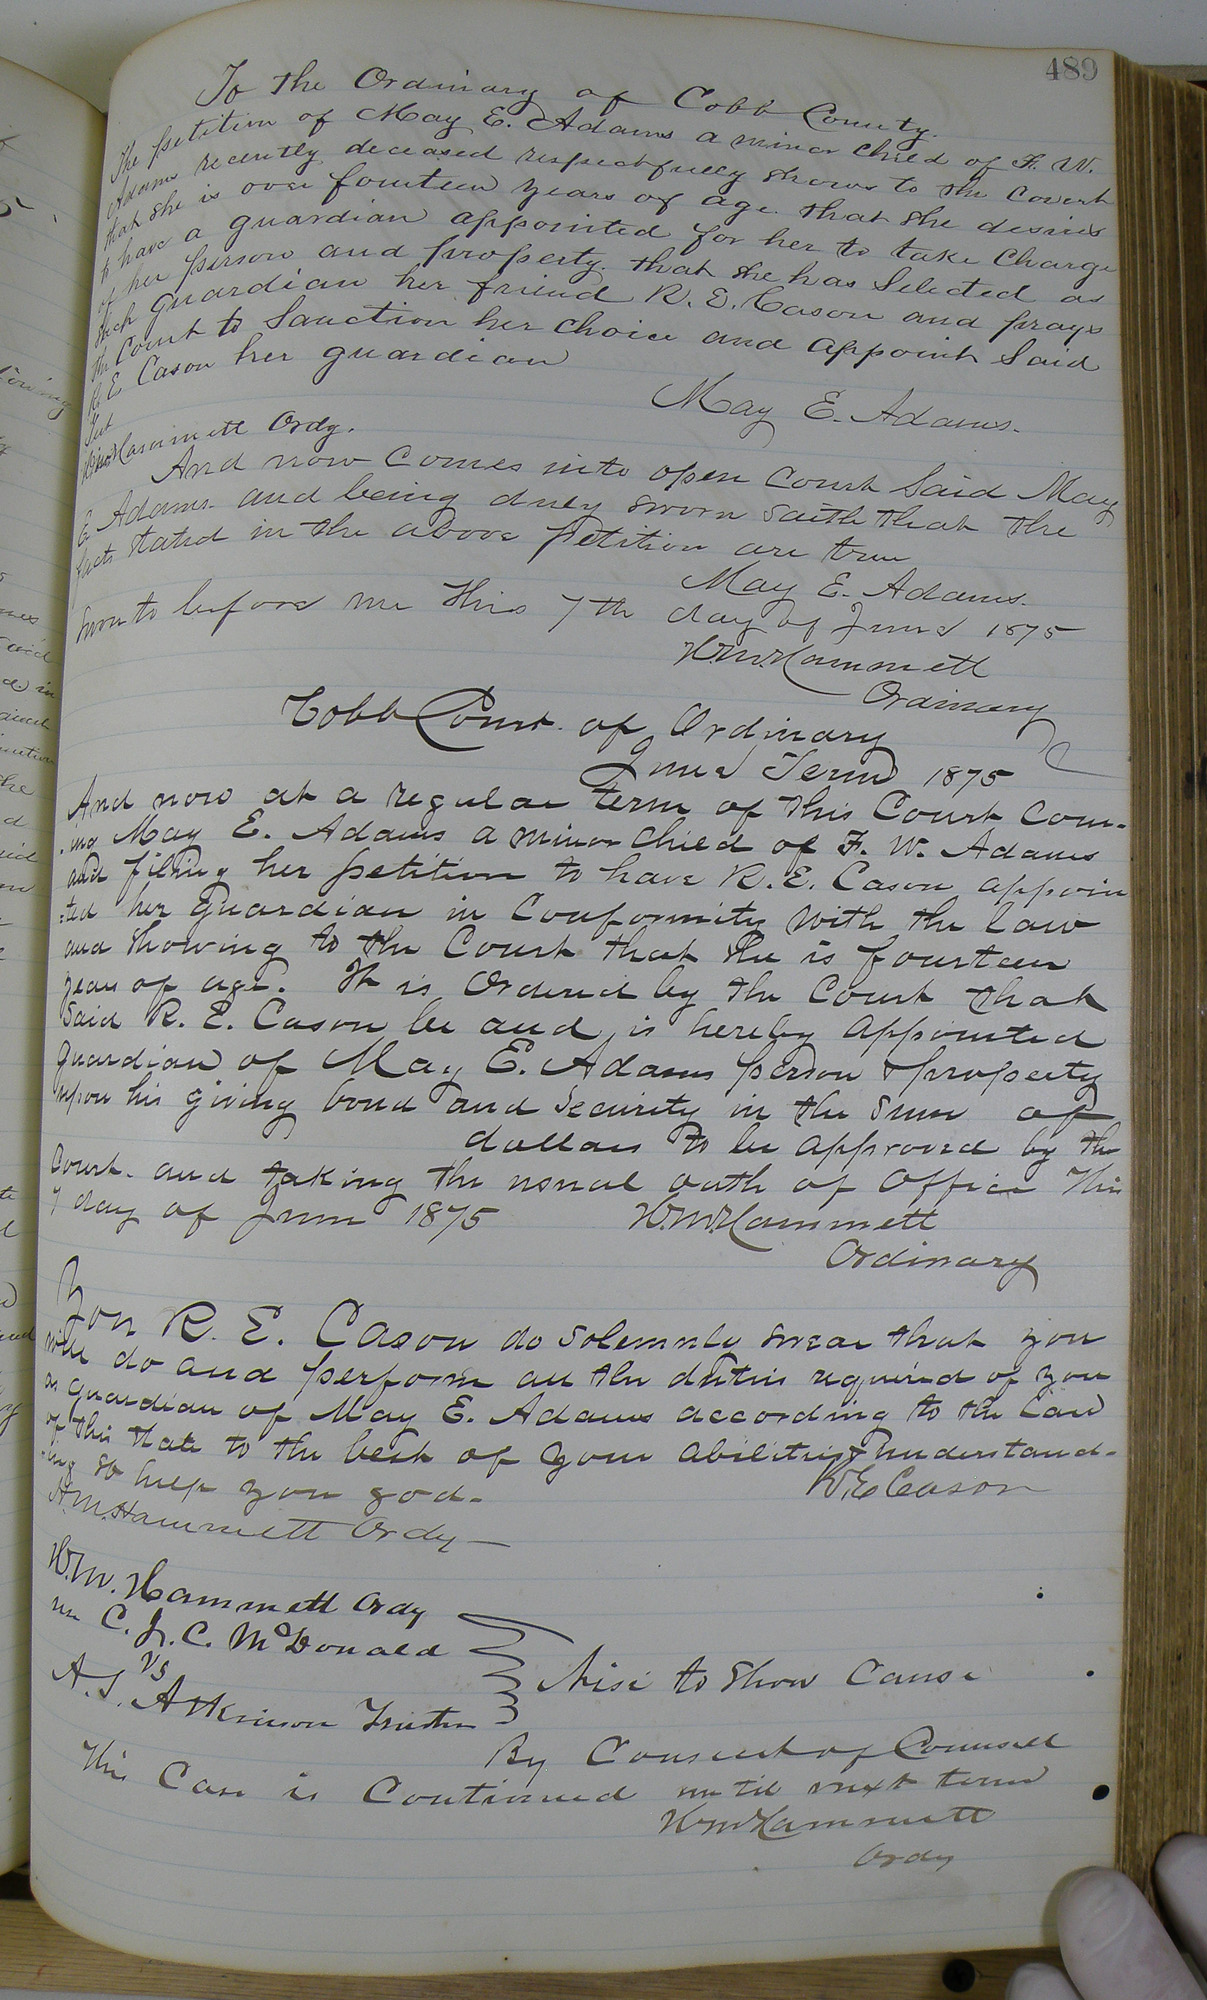 489
To the Ordinary of Cobb County.
The petition of May E. Adams a minor child of F. W.
Adams recently deceased respectfully shows to the Court
that she is over fourteen years of age. that she desires
to have a guardian appointed for her to take charge
of her person and property. that she has Selected as
such guardian her friend R. E. Cason and prays
the Court to Sanction her choice and appoint Said
R. E. Cason her guardian
May E. Adams.
Test
Wm Hammett Ordy.
And now comes into open Court Said May
E. Adams. and being duly sworn saith that the
facts stated in the above petition are true
May E. Adams.
Sworn to before me this 7th day of June 1875
W.M. Hammett
Ordinary
Cobb Court of Ordinary
June Term 1875
And now at a regular term of this Court Com-
-ing May E. Adams a minor child of F. W. Adams
and filing her petition to have R. E. Cason appoin
-ted her guardian in Conformity with the law
and showing to the Court that she is fourteen
years of age. It is Ordered by the Court that
Said R. E. Cason be and is hereby appointed
guardian of May E. Adams person & property
upon his giving bond and security in the sum of
dollars to be approved by the
Court. and taking the usual oath of office This
7 day of June 1875 W.M. Hammett
Ordinary
You R. E. Cason do solemnly swear that you
will do and perform all the duties required of you
as guardian of May E. Adams according to the Law
of this State to the best of your abilities & understand-
-ing so help you god.
R. E. Cason
H.M. Hammett Ordy
W.M. Hammett Ordy
C. J. C. McDonald
vs
A. S. Atkinson Trustee
Nisi to Show Cause
By Consent of Counsell
This Case is Continued until next term
W.M. Hammett
Ordy